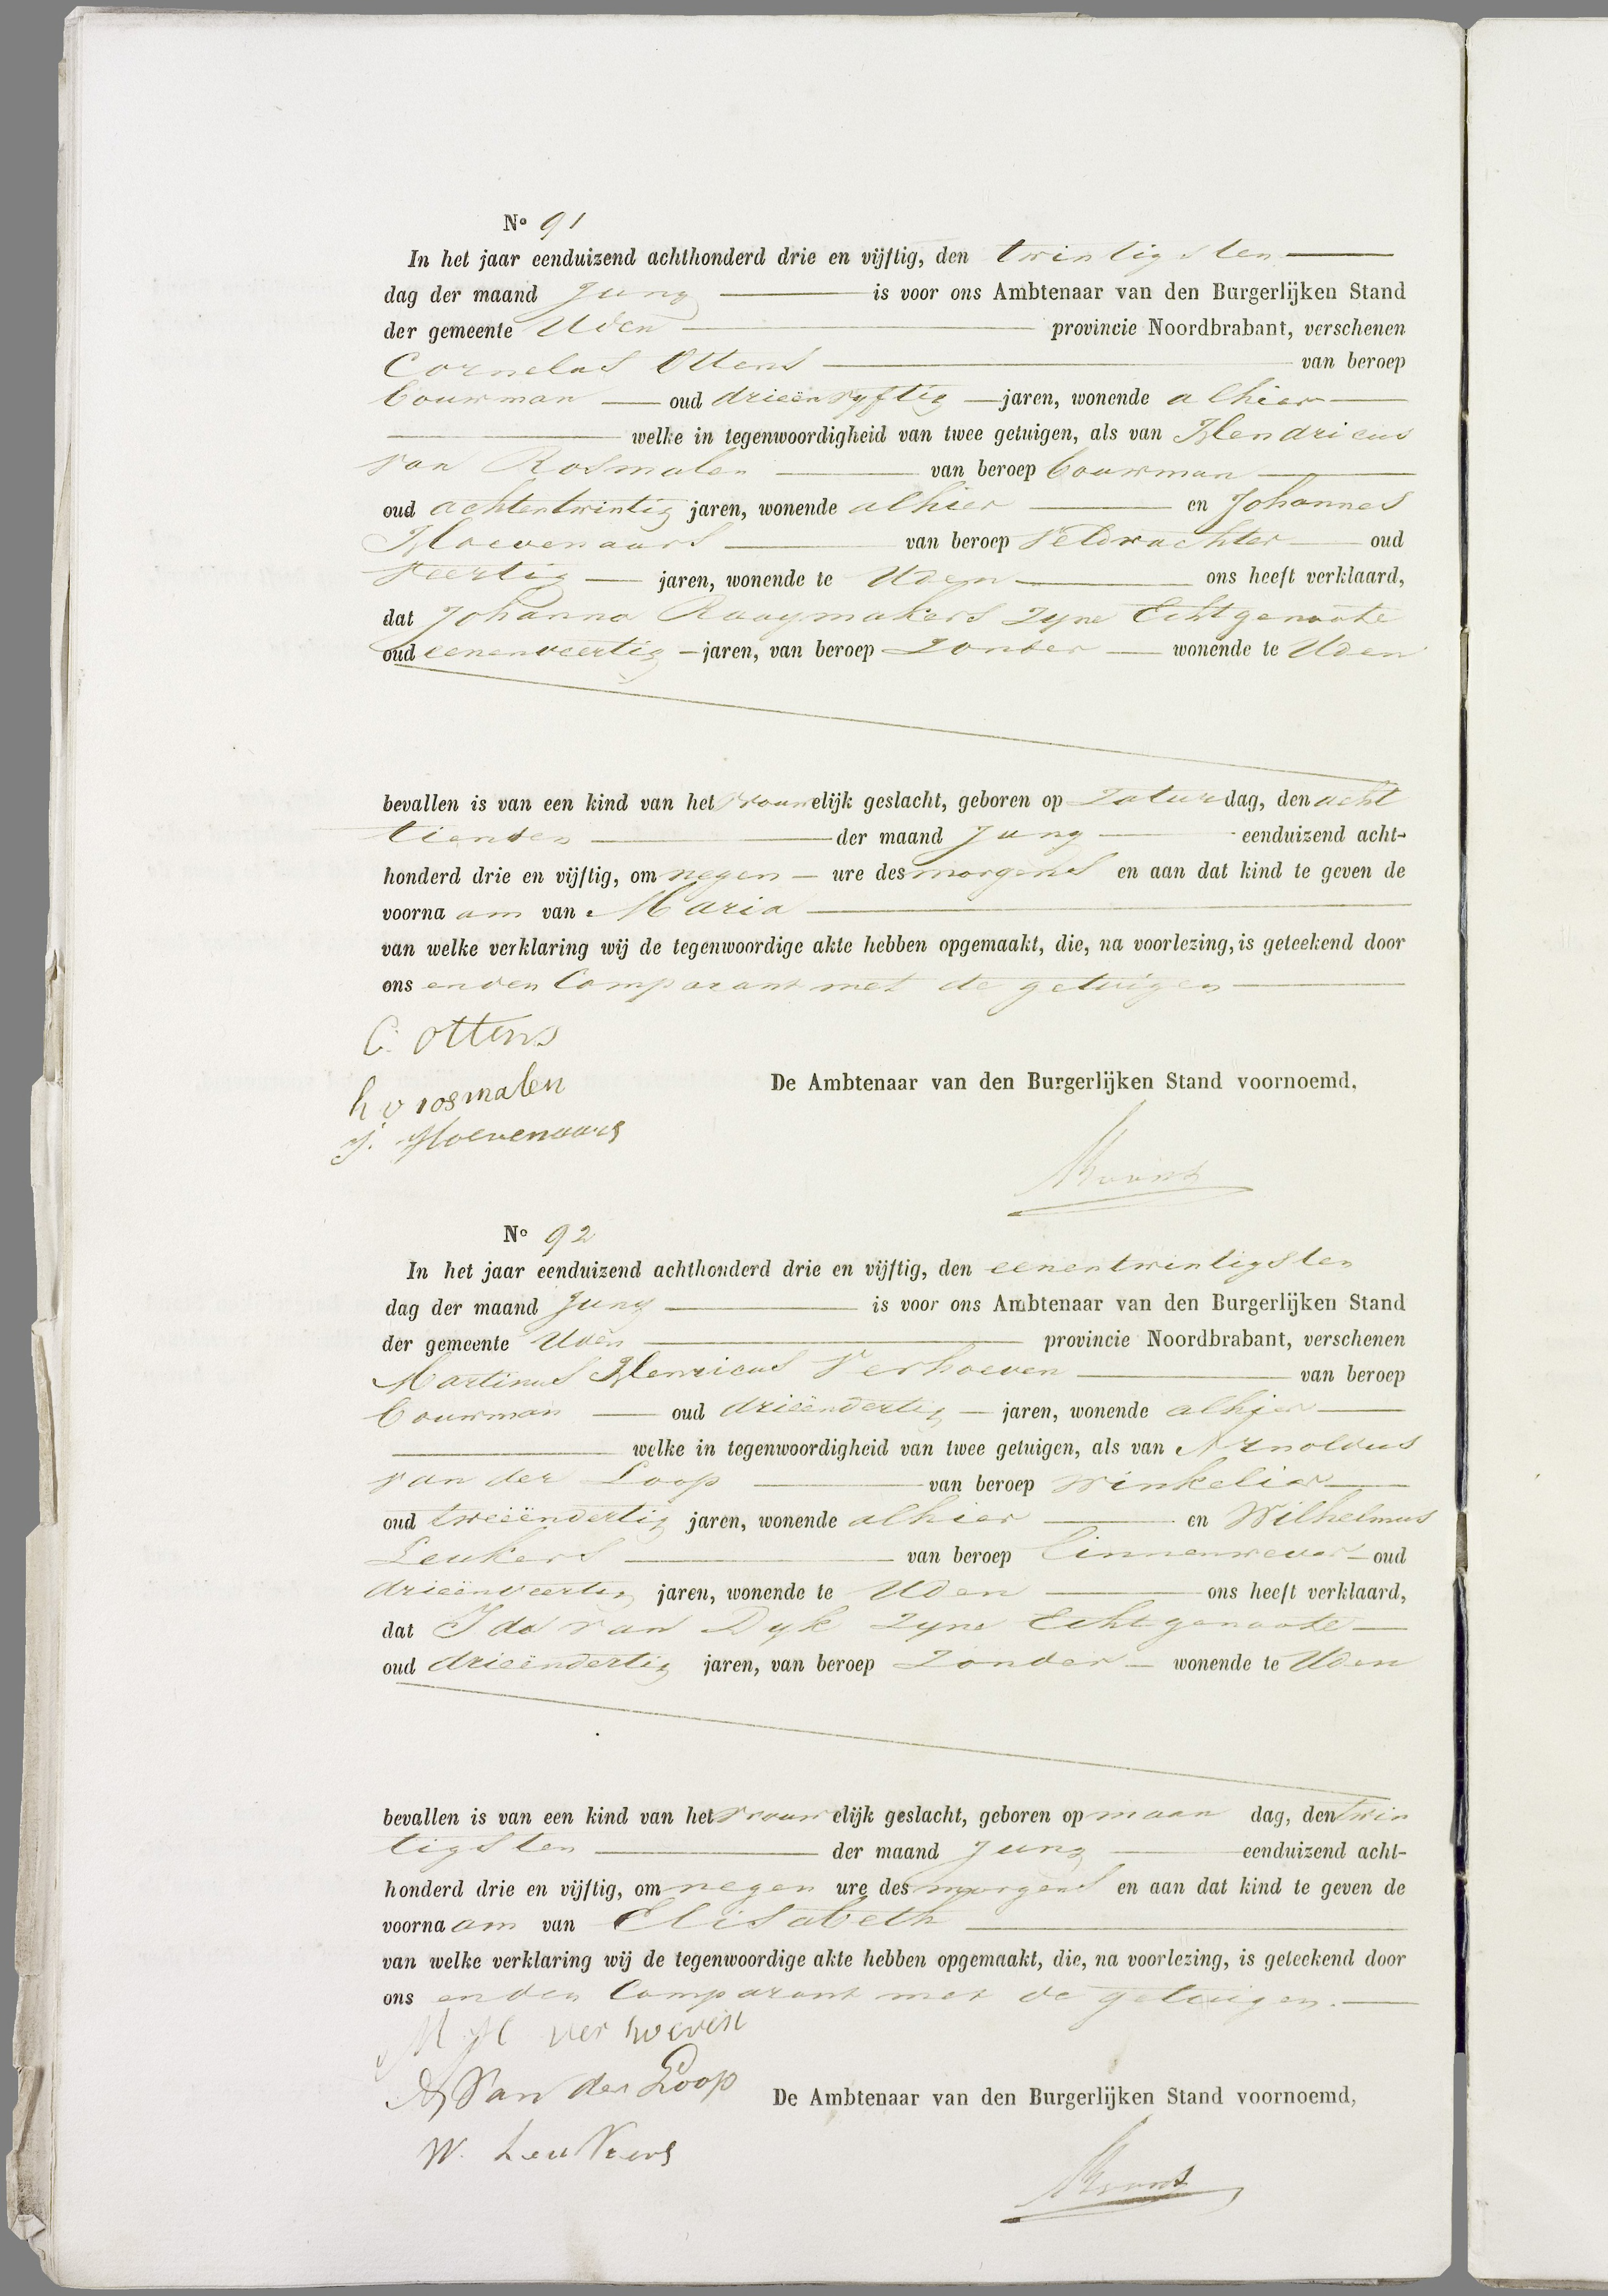 No 91
In het jaar eenduizend achthonderd drie en vijftig, den twintigsten
dag der maand Juny is voor ons Ambtenaar van den Burgerlijken Stand
der gemeente Uden provincie Noordbrabant, verschenen
Cornelus Ottens van beroep
bouwman oud drieënvyftig jaren, wonende alhier
welke in tegenwoordigheid van twee getuigen, als van Hendricus
van Rosmalen van beroep bouwman
oud achtentwintig jaren, wonende alhier en Johannes
Hoevenaars van beroep Veldwachter oud
veertig jaren, wonende te Uden ons heeft verklaard,
dat Johanna Raaymakers zyne Echtgenoote
oud eenenveertig jaren, van beroep zonder wonende te Uden
bevallen is van een kind van het vrouwelijk geslacht, geboren op Zaturdag, den acht
tienden der maand Juny eenduizend acht-
honderd drie en vijftig, om negen ure des morgens en aan dat kind te geven de
voornaam van Maria
van welke verklaring wij de tegenwoordige akte hebben opgemaakt, die, na voorlezing, is geteekend door
ons en den Comparant met de getuigen
C. Ottens
h v rosmalen
J. Hoevenaars
De Ambtenaar van den Burgerlijken Stand voornoemd,
No 92
In het jaar eenduizend achthonderd drie en vijftig, den eenentwintigsten
dag der maand Juny is voor ons Ambtenaar van den Burgerlijken Stand
der gemeente Uden provincie Noordbrabant, verschenen
Martinus Henricus Verhoeven van beroep
bouwman oud drieëndertig jaren, wonende alhier
welke in tegenwoordigheid van twee getuigen, als van Arnoldus
van der Loop van beroep winkelier
oud tweeëndertig jaren, wonende alhier en Wilhelmus
Leukers van beroep linnenwever oud
drieënveertig jaren, wonende te Uden ons heeft verklaard,
dat Ida van Dyk zyne Echtgenoote
oud drieëndertig jaren, van beroep zonder wonende te Uden
bevallen is van een kind van het vrouwelijk geslacht, geboren op maandag, den twin
tigsten der maand Juny eenduizend acht-
honderd drie en vijftig, om negen ure des morgens en aan dat kind te geven de
voornaam van Elisabeth
van welke verklaring wij de tegenwoordige akte hebben opgemaakt, die, na voorlezing, is geteekend door
ons en den Comparant met de getuigen.
M H verhoeven
A Van der Loop
De Ambtenaar van den Burgerlijken Stand voornoemd,
W. Leukers